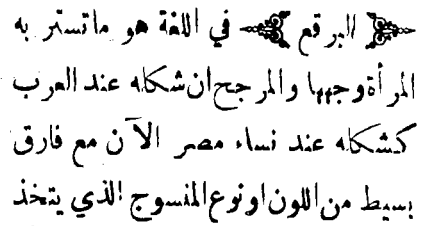 البرقع في اللغة هو ماتستر به
المرأة وجهها والمرجح ان شكله عند العرب
كشكله عند نساء مصر الآن مع فارق
بسيط من اللون او نوع المنسوج الذي يتخذ